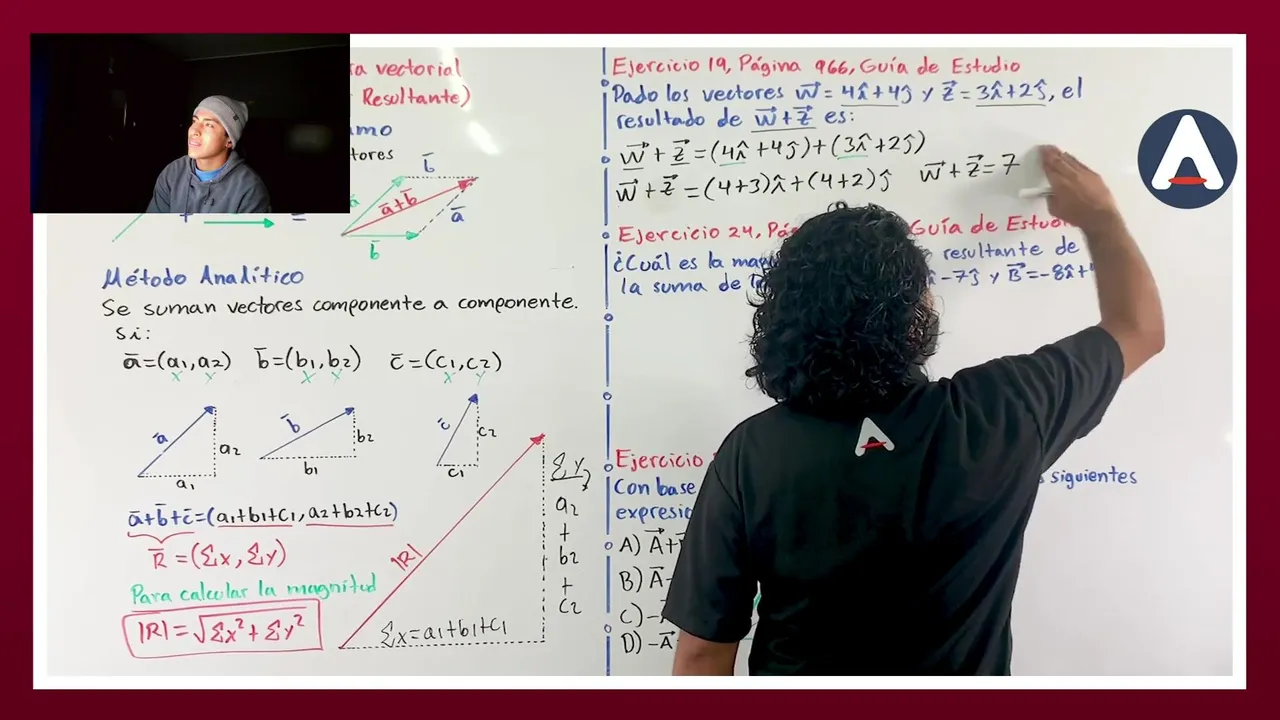 ra vectorial
Resultante)
amo
tores
b̄
ā
ā+b̄
ā
b̄
+
=
Método Analítico
Se suman vectores componente a componente.
Si:
ā=(a1,a2) b̄=(b1,b2) c̄=(c1,c2)
x y x y x y
ā
a2
a1
b̄
b2
b1
c̄
c2
c1
ā+b̄+c̄=(a1+b1+c1, a2+b2+c2)
R̄=(Σx, Σy)
Para calcular la magnitud
|R̄|=√Σx²+Σy²
|R|
Σx=a1+b1+c1
Σy
a2
+
b2
+
c2
Ejercicio 19, Página 966, Guía de Estudio
Dado los vectores w⃗=4î+4ĵ y z⃗=3î+2ĵ, el
resultado de w⃗+z⃗ es:
w⃗+z⃗=(4î+4ĵ)+(3î+2ĵ)
w⃗+z⃗=(4+3)î+(4+2)ĵ w⃗+z⃗=7
Ejercicio 24, Guía de
¿Cuál es la resultante de
la suma de -7ĵ y B⃗=-8î+
Ejercicio
Con base siguientes
A) A⃗+
B) A⃗-
C) -
D) -A⃗
A
A